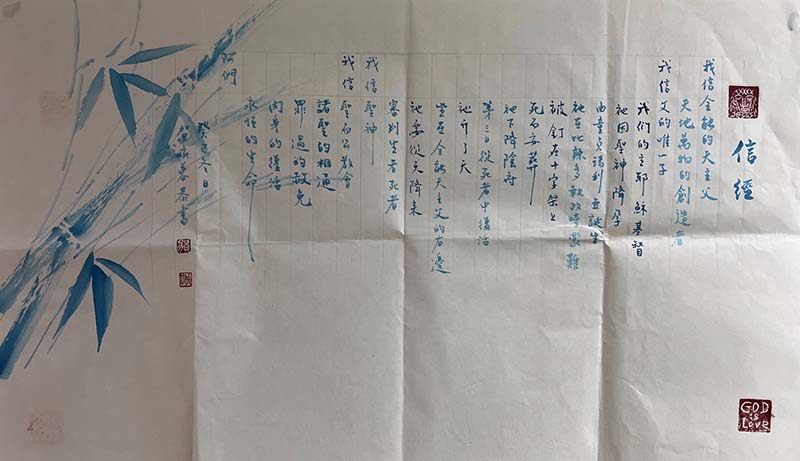 信經
我信全能的天主父
天地萬物的創造者
我信父的唯一子
我们的主耶穌基督
祂因聖神降孕
由童貞瑪利亞誕生
祂在比辣多執政時蒙難
被釘在十字架上
死而安葬
祂下降陰府
第三日從死者中復活
祂升了天
坐在全能天主父的右邊
祂要從天降來
審判生者死者
我信聖神
我信聖而公教會
諸聖的相通
罪過的赦免
肉身的復活
永恆的生命
阿們
癸巳冬日
恭書
JESUS
GOD is Love